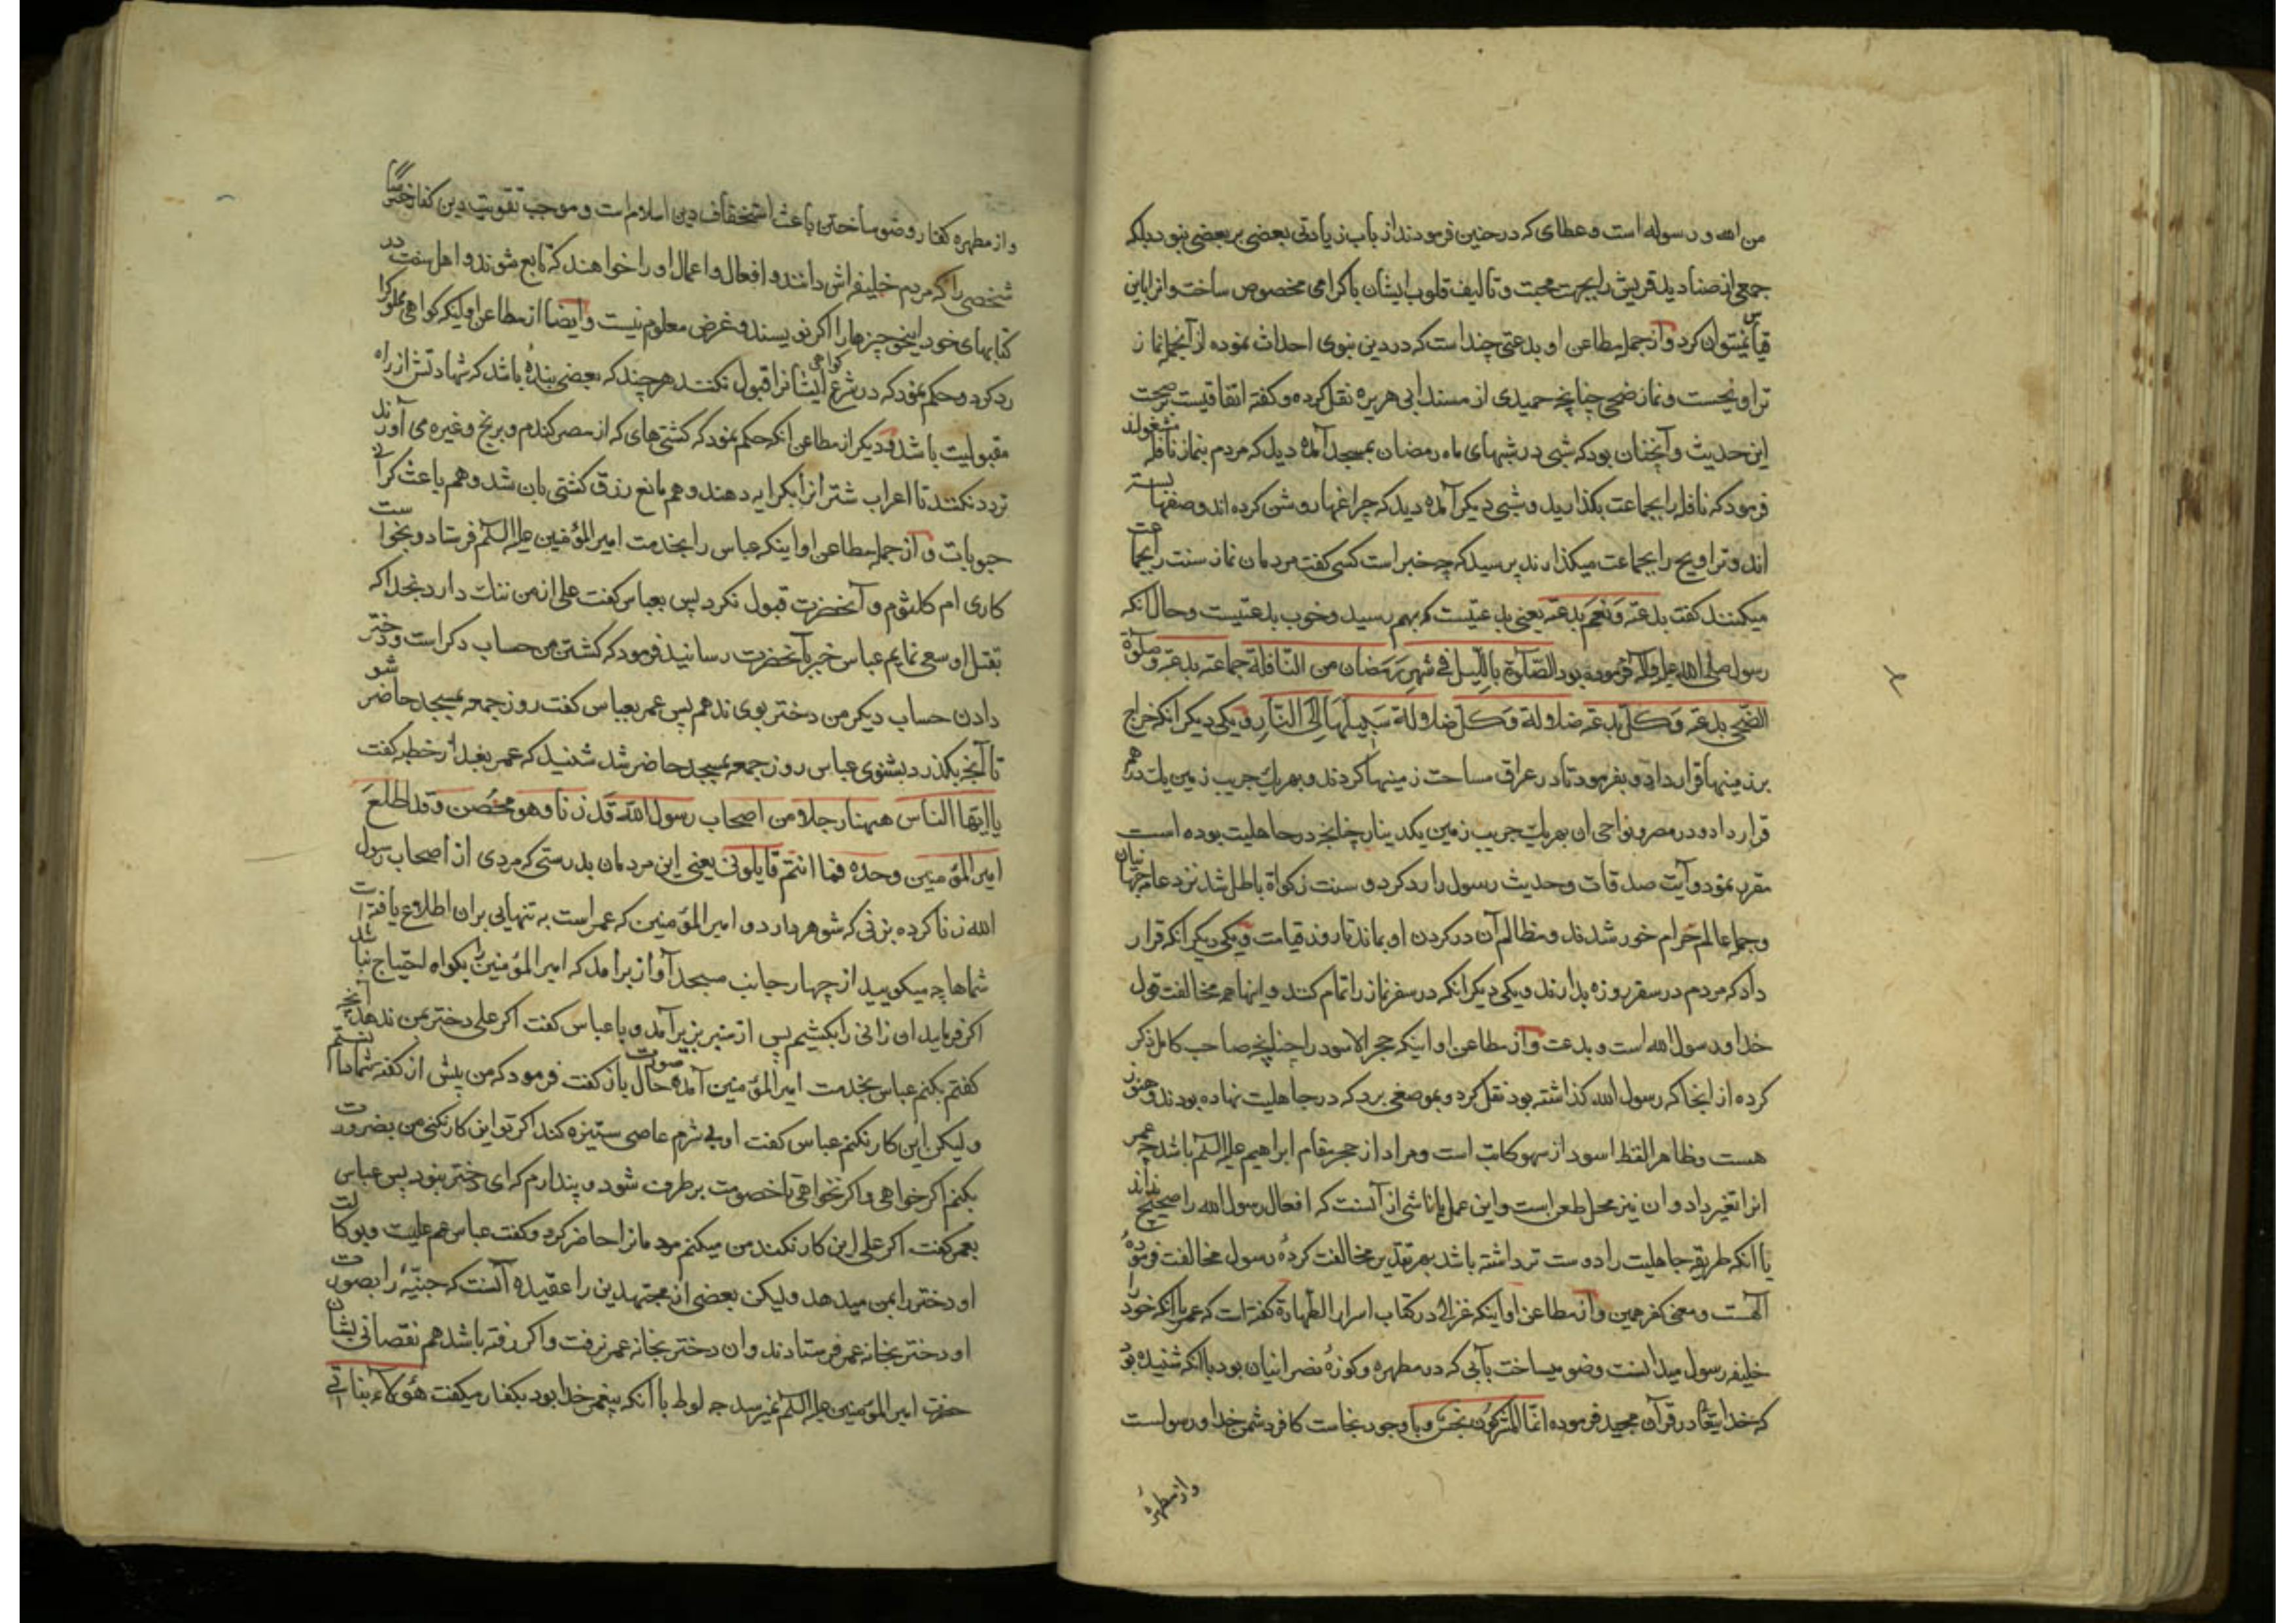 من الله و رسوله است و عطای که در حنین فرمودند از باب زیادتی بعضی بر بعضی نبود بلکه
جمعی از صنادید قریش را بجهت محبت و تالیف قلوب ایشان باکرامی مخصوص ساخت و انرا باین
قیاس نمیتوان کرد و از جمله مطاعن او بدعتی چند است که در دین نبوی احداث نموده از آنجمله نماز
تراویحست و نماز ضحی چنانچه حمیدی از مسند ابی هریره نقل کرده و کفته اتفاقیست بر صحت
این حدیث و آنچنان بود که شبی در شبهای ماه رمضان بمسجد آمده دید که مردم بنماز نافله مشغولند
فرمود که نافله را بجماعت بکذارید و شبی دیکر آمده دید که چراغها روشن کرده اند و صفها بسته
اند و تراویح را بجماعت میکذارند پرسید که چه خبر است کسی کفت مردمان نماز سنت را بجماعت
میکنند کفت بدعة و نعم بدعة یعنی بدعتیست که بهم رسید و خوب بدعتیست و حال انکه
رسول صلی الله علیه وآله فرموده بود الصّلوة باللّیل فی شهر رمضان من النّافلة جماعة بدعة و صلوة
الضّحی بدعة و کلّ بدعة ضلالة و کلّ ضلالة سبیلها الی النّار و یکی دیکر انکه خراج
بر زمینها قرار داد و بفرمود تا در عراق مساحت زمینها کردند و بهر یك جریب زمین یك درهم
قرار داد و در مصر و نواحی ان بهر یك جریب زمین یکدینار چنانچه در جاهلیت بوده است
مقرر نمود و آیت صدقات و حدیث رسول را رد کرد و سنت زکواة باطل شد نزد عامه جهانیان
و جمله عالم حرام خور شدند و مظالم آن در کردن او بماند تا روز قیامت و یکی دیکر انکه قرار
داد که مردم در سفر روزه بدارند و یکی دیکر انکه در سفر نماز را تمام کنند و اینها همه مخالفت قول
خدا و رسول الله است و بدعت و از مطاعن او اینکه حجر الاسود را چنانچه صاحب کامل ذکر
کرده از اینجا که رسول الله کذاشته بود نقل کرد و بموضعی برد که در جاهلیت نهاده بودند و هنوز
هست و ظاهرا لفظ اسود از سهو کاتب است و مراد از حجر مقام ابراهیم علیه السلم باشد چه عمر
انرا تغیر داد و ان نیز محل طعن است و این عمل یا ناشی از آنست که افعال رسول الله را صحیح نداند
یا آنکه طریقه جاهلیت را دوست تر داشته باشد بهر تقدیر مخالفت کردهٔ رسول مخالفت فرمودهٔ
آلهست و معنی کفر همین و از مطاعن او اینکه غزالی در کتاب اسرار الطهارة کفته است که عمر با آنکه خود را
خلیفه رسول میدانست وضو میساخت بآبی که در مطهره و کوزهٔ نصرانیان بود با آنکه شنیده بود
که خدایتعالی در قرآن مجید فرموده انّما المشرکون نجس و با وجود نجاست کافر دشمن خدا و رسولست
و از مطهرهٔ
و از مطهره کفار وضو ساختن باعث استخفاف دین اسلام است و موجب تقویت دین کفار
شخصی را که مردم خلیفه اش دانند و افعال و اعمال او را خواهند که تابع شوند و اهل سنت در
کتابهای خود اینخو چیزها را اکر نویسند و غرض معلوم نیست و ایضا از مطاعن او اینکه کواهی مملوک را
رد کرد و حکم نمود که در شرع کواهی ایشانرا قبول نکنند هرچند که بعضی بندهٔ باشد که شهادتش از راه
مقبولیت باشد و دیکر از مطاعن انکه حکم نمود که کشتی های که از مصر کندم و برنج و غیره می آورند
تردد نکنند تا اعراب شترانرا بکرایه دهند و هم مانع رزق کشتی بان شد و هم باعث کرانی
حبوبات و از جمله مطاعن او اینکه عباس را بخدمت امیر المؤمنین علیه السلم فرستاد و بخواست
کاری ام کلثوم و آنحضرت قبول نکرد پس بعباس کفت علی از من ننك دارد بخدا که
بقتل او سعی نمایم عباس خبر بآنحضرت رسانید فرمود که کشتن من حساب دکر است و دختر
دادن حساب دیکر من دختر بوی ندهم پس عمر بعباس کفت روز جمعه بمسجد حاضر شو
تا آنچه بکذرد بشنوی عباس روز جمعه بمسجد حاضر شد شنید که عمر بعد از خطبه کفت
یا ایّها النّاس ههنا رجلا من اصحاب رسول الله قد زنا و هو محصن و قد اطلع
امیر المؤمنین وحده فما انتم قایلون یعنی این مردمان بدرستی که مردی از اصحاب رسول
الله زنا کرده بزنی که شوهر دارد و امیر المؤمنین که عمر است به تنهایی بران اطلاع یافته است
شماها چه میکویید از چهار جانب مسجد آواز برامد که امیر المؤمنین را بکواه احتیاج نباشد
اکر فرماید ان زانی را بکشیم پس از منبر بزیر آمد و با عباس کفت اکر علی دختر بمن ندهد آنچه
کفتم بکنم عباس بخدمت امیر المؤمنین آمده صورت حال باز کفت فرمود که من پیش از کفته شما دانستم
و لیکن این کار نکنم عباس کفت او بی شرم عاصی ستیزه کند اکر تو این کار نکنی من بضرورت
بکنم اکر خواهی و اکر نخواهی تا خصومت بر طرف شود و پندارم که ای دختر نبود پس عباس
بعمر کفت اکر علی این کار نکند من میکنم مردمانرا حاضر کرد و کفت عباس عم علیست و بوکالت
او دختر را بمن میدهد و لیکن بعضی از مجتهدین را عقیده آنست که جنّیّهٔ را بصورت
او دختر بخانه عمر فرستادند و ان دختر بخانه عمر نرفت و اکر رفته باشد هم نقصانی بشان
حضرت امیر المؤمنین علیه السلم نمیرسد چه لوط با آنکه پیغمبر خدا بود بکفار میکفت هؤلاء بناتی